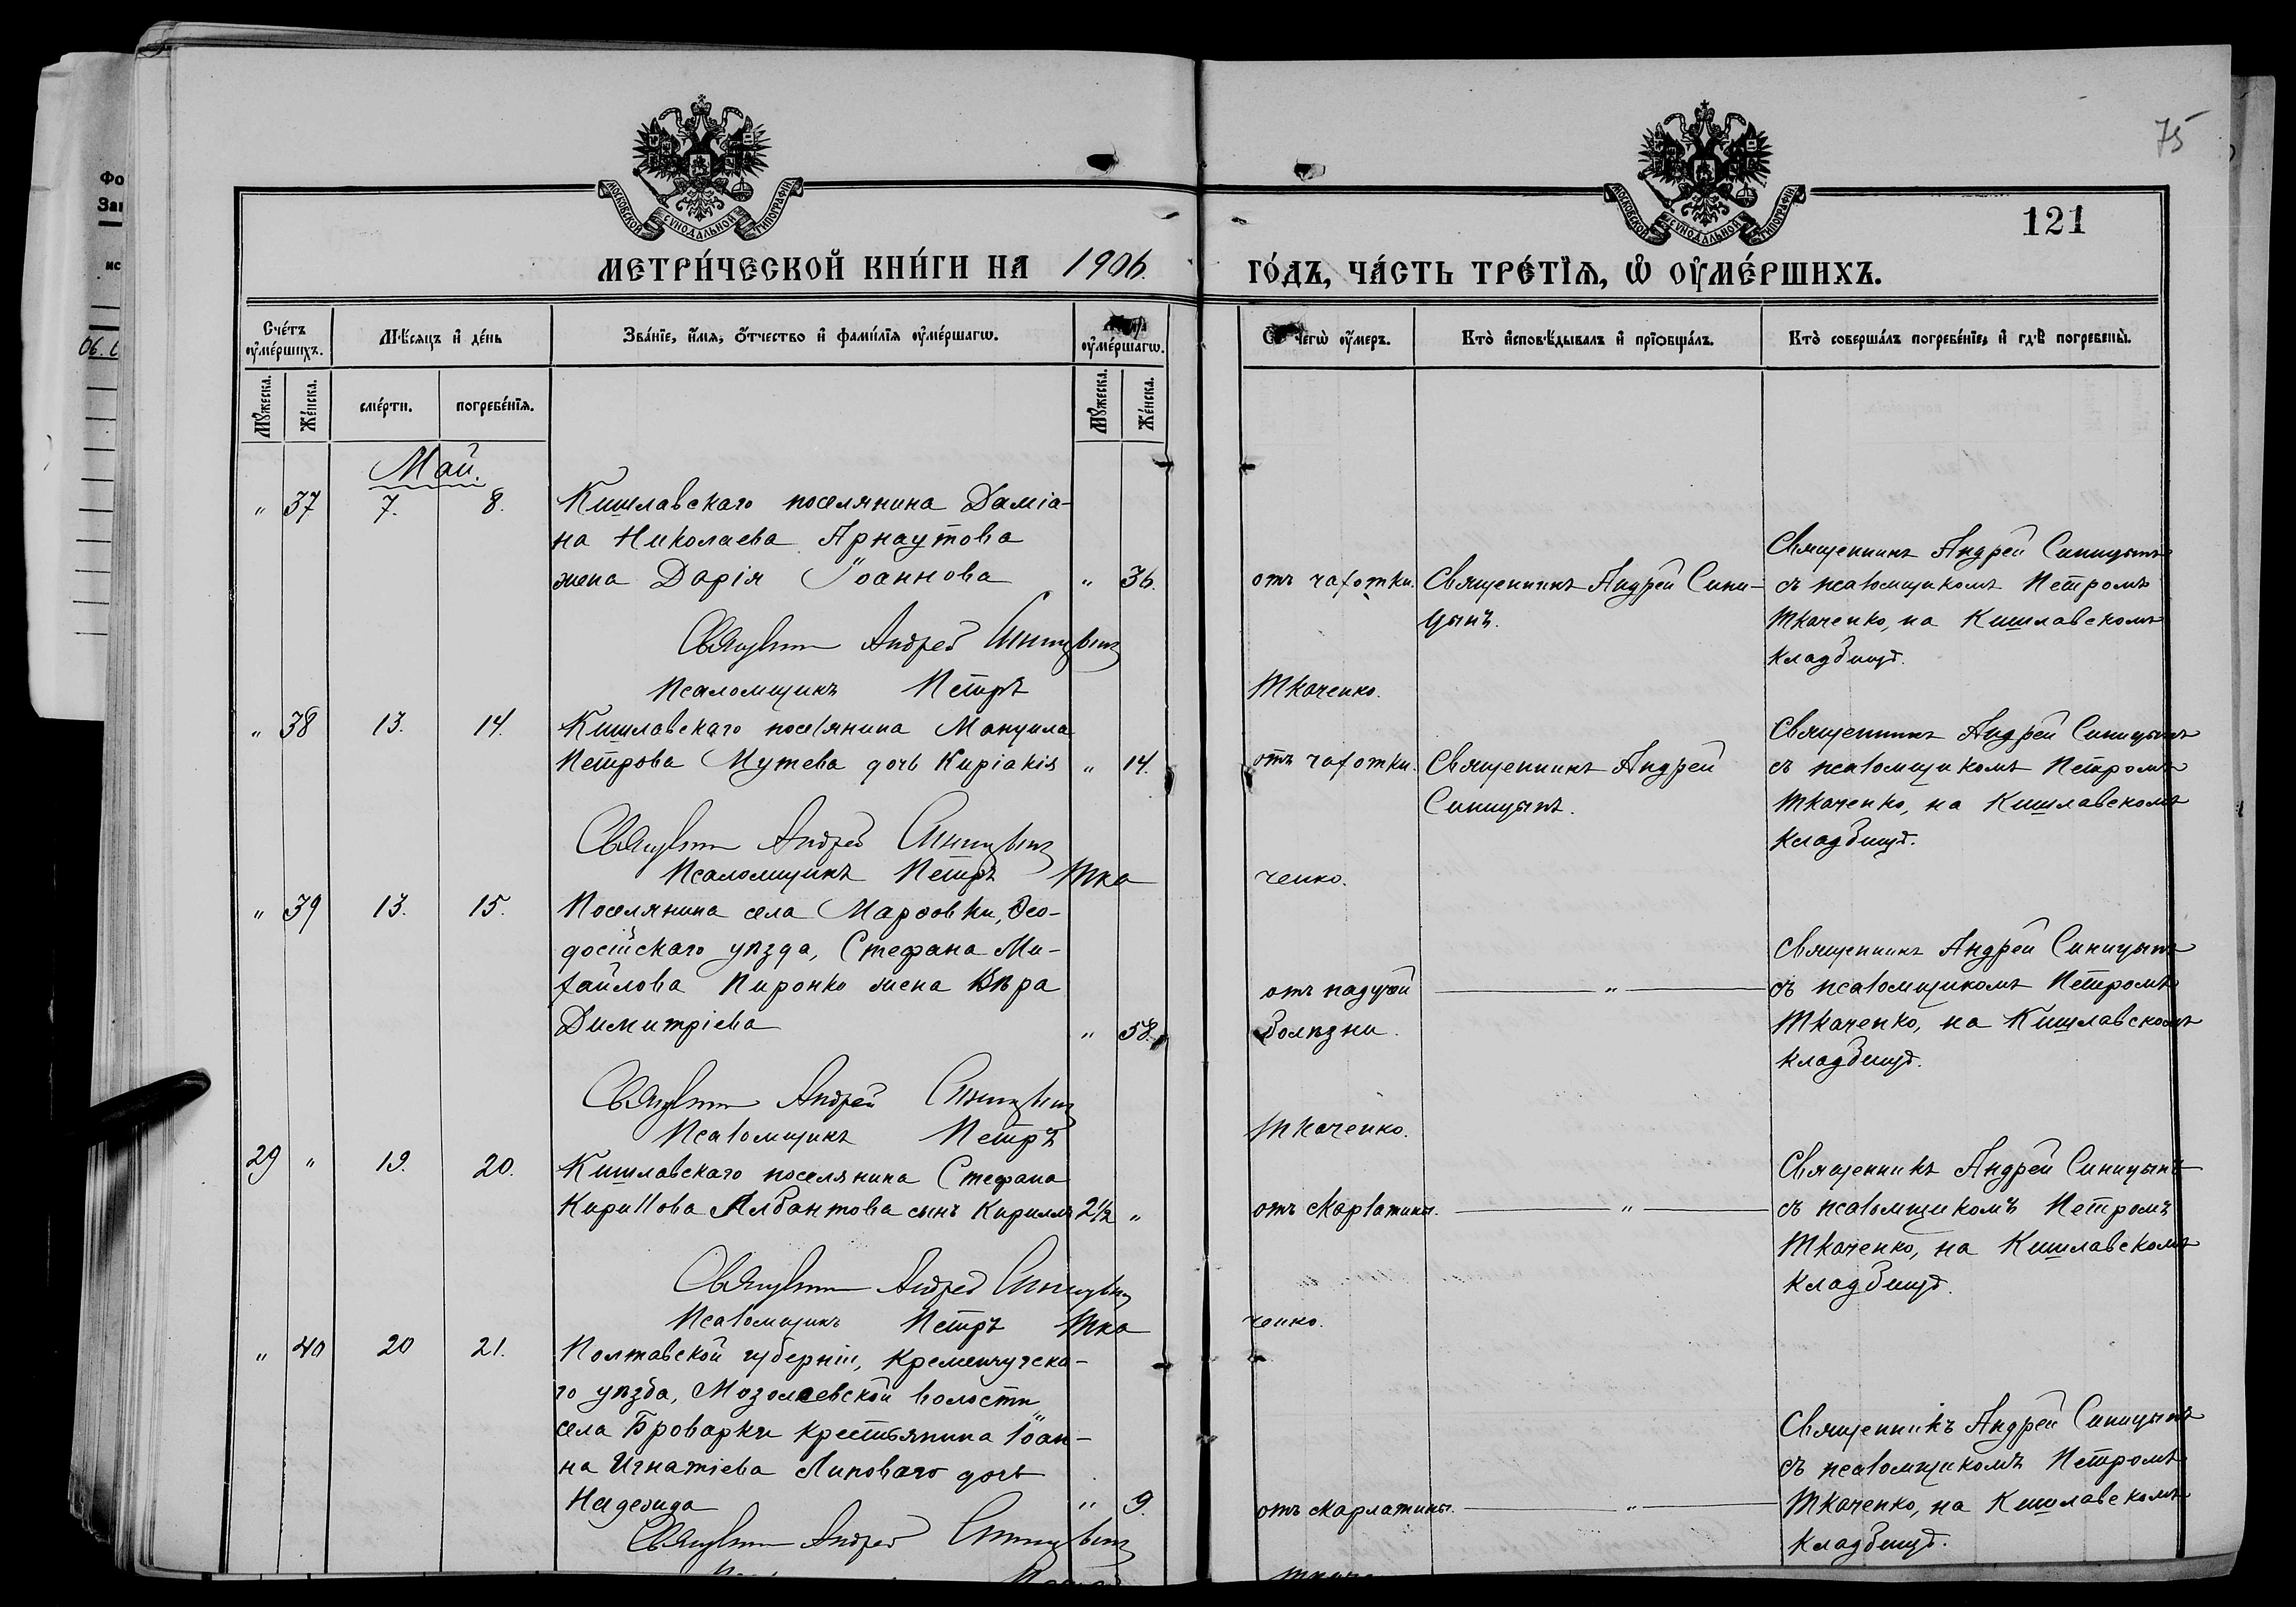 75
121
МОСКОВСКОЙ СѴНОДАЛЬНОЙ ТИПОГРАФІИ
МОСКОВСКОЙ СѴНОДАЛЬНОЙ ТИПОГРАФІИ
МЕТРИ́ЧЕСКОЙ КНИ́ГИ НА 1906. ГО́ДЪ, ЧА́СТЬ ТРЕ́ТІѦ, Ѡ ОУМЕ́РШИХЪ.
Сче́тъ оумершихъ.
Мѣсяцъ и де́нь
Зва́ніе, и́мя, о́тчество и фами́лія оумершагѡ.
оумершагѡ.
чегѡ оумеръ.
Кто̀ исповѣ́дывалъ и пріобща́лъ.
Кто̀ соверша́лъ погребе́ніе, и гдѣ погребены̀.
Мꙋжеска.
Же́нска.
сме́рти.
погребе́нія.
Мꙋжеска.
Же́нска.
Май.
" 37 7. 8. Кишлавскаго поселянина Даміа-
на Николаева Арнаутова
жена Дарія Іоаннова " 36. отъ чахотки. Священникъ Андрей Сини-
цынъ.
Священникъ Андрей Синицынъ
съ псаломщикомъ Петромъ
Ткаченко, на Кишлавскомъ
кладбищѣ.
Священникъ Андрей Синицынъ
Псаломщикъ Петръ Ткаченко.
" 38 13. 14. Кишлавскаго поселянина Мануила
Петрова Мутева дочь Киріакія " 14. отъ чахотки. Священникъ Андрей
Синицынъ.
Священникъ Андрей Синицынъ
съ псаломщикомъ Петромъ
Ткаченко, на Кишлавскомъ
кладбищѣ.
Священникъ Андрей Синицынъ
Псаломщикъ Петръ Тка ченко.
" 39 13. 15. Поселянина села Марфовки, Ѳео-
досійскаго уѣзда, Стефана Ми-
хайлова Пиронко жена Вѣра
Димитріева " 58. отъ падучей
болѣзни. "
Священникъ Андрей Синицынъ
съ псаломщикомъ Петромъ
Ткаченко, на Кишлавскомъ
кладбищѣ.
Священникъ Андрей Синицынъ
Псаломщикъ Петръ Ткаченко.
29 " 19. 20. Кишлавскаго поселянина Стефана
Кириллова Албантова сынъ Кириллъ 2½ " отъ скарлатины. "
Священникъ Андрей Синицынъ
съ псаломщикомъ Петромъ
Ткаченко, на Кишлавскомъ
кладбищѣ.
Священникъ Андрей Синицынъ
Псаломщикъ Петръ Тка ченко.
" 40 20 21. Полтавской губерніи, Кременчугска-
го уѣзда, Мозолеевской волости
села Броварки крестьянина Іоан-
на Игнатіева Липоваго дочь
Надежда " 9. отъ скарлатины. "
Священникъ Андрей Синицынъ
съ псаломщикомъ Петромъ
Ткаченко, на Кишлавскомъ
кладбищѣ.
Священникъ Андрей Синицынъ